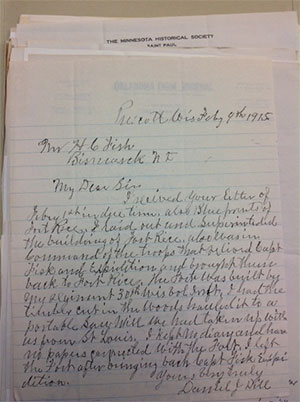 THE MINNESOTA HISTORICAL SOCIETY
SAINT PAUL
Prescott Wis Feby 9th 1915
Mr H. C. Fish
Bismarck N D
My Dear Sir
I received your letter of
Feby 1st in due time, also Blue prints of
Fort Rice, I laid out and Superintended
the building of Fort Rice, also was in
Command of the troops that relieved Capt
Fisk and Expedition and brought them
back to Fort Rice, the Fort was built by
My regiment 30th Wis Vol Inft, I had the
timber cut in the Woods hauled it to a
portable Saw Mill we had taken up with
us from St Louis, I kept No diary and have
no papers connected with the Fort, I left
the Fort after bringing back Capt Fisk Expe-
dition.
Yours Very truly
Daniel J Dill